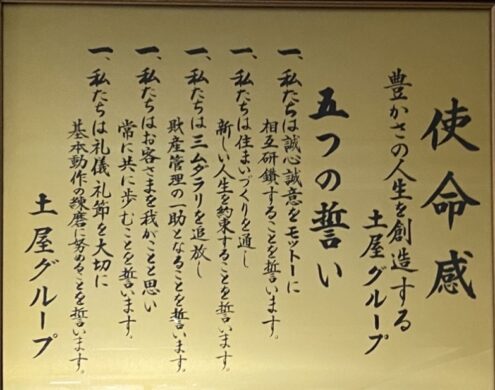 使命感
豊かさの人生を創造する
土屋グループ
五つの誓い
一、私たちは誠心誠意をモットーに
相互研鑽することを誓います。
一、私たちは住まいづくりを通し
新しい人生を約束することを誓います。
一、私たちは三ムダラリを追放し
財産管理の一助となることを誓います。
一、私たちはお客さまを我がことと思い
常に共に歩むことを誓います。
一、私たちは礼儀、礼節を大切に
基本動作の練磨に努めることを誓います。
土屋グループ